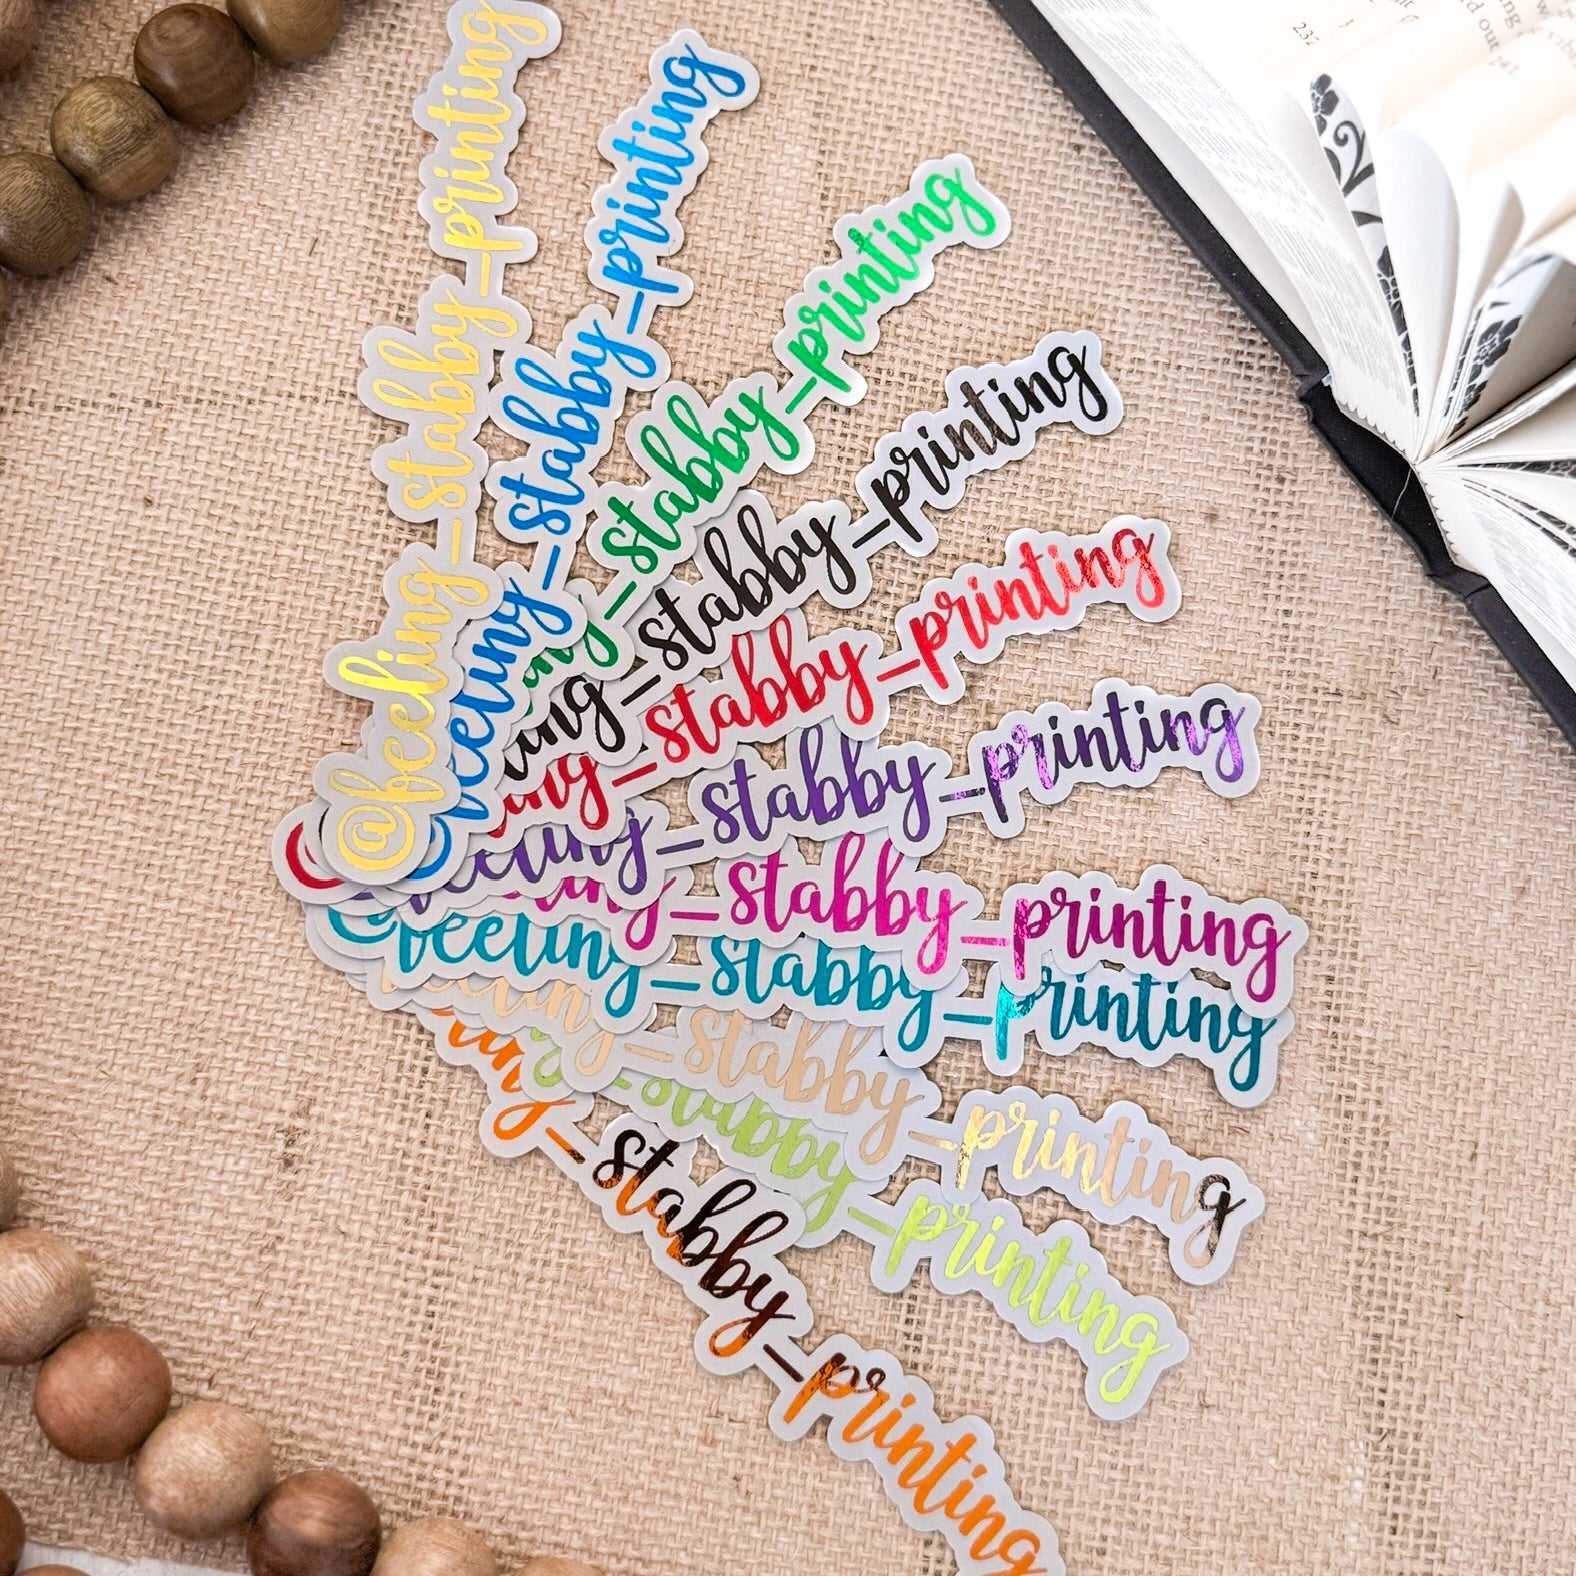 @feeling_stabby_printing
@feeling_stabby_printing
ing_stabby_printing
ing_stabby_printing
ling_stabby_printing
feeling_stabby_printing
eling_stabby_printing
@feeling_stabby_printing
feeling_stabby_printing
g_stabby_printing
eling_stabby_printing
232
241